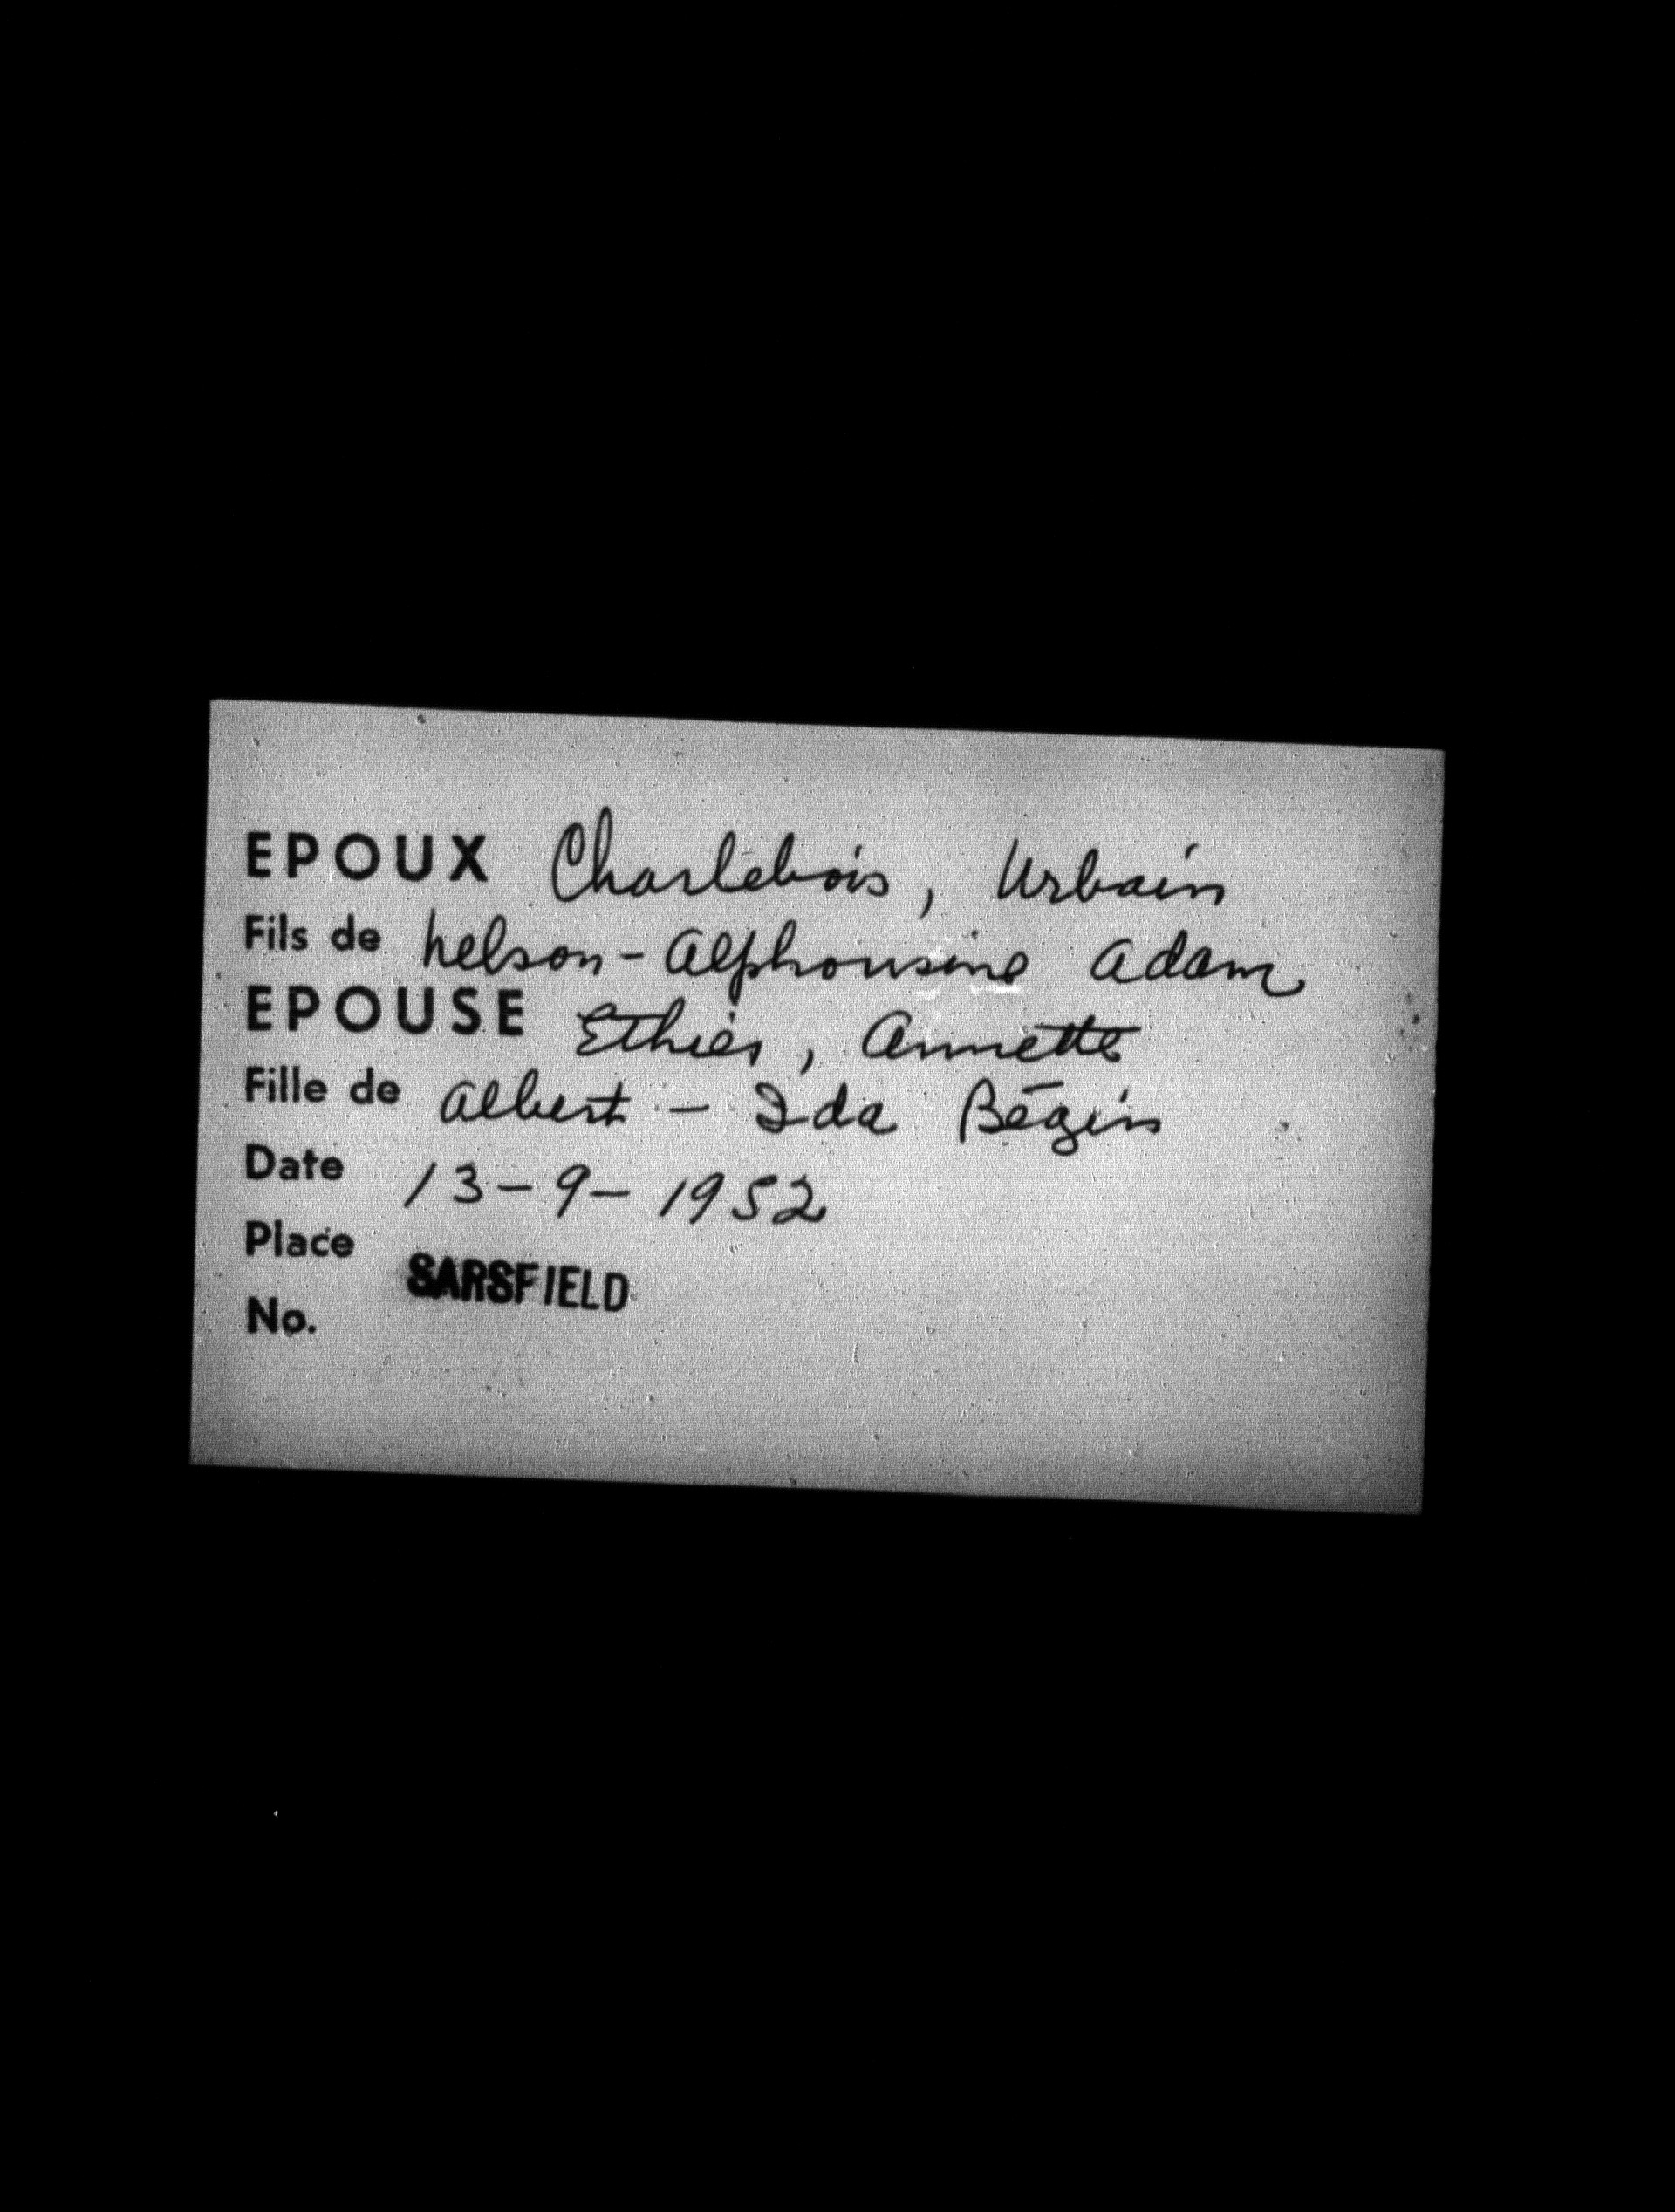 EPOUX Charlebois, Urbain
Fils de Nelson - Alphonsine Adam
EPOUSE Ethier, Annette
Fille de Albert - Ida Bégin
Date 13-9-1952
Place SARSFIELD
No.